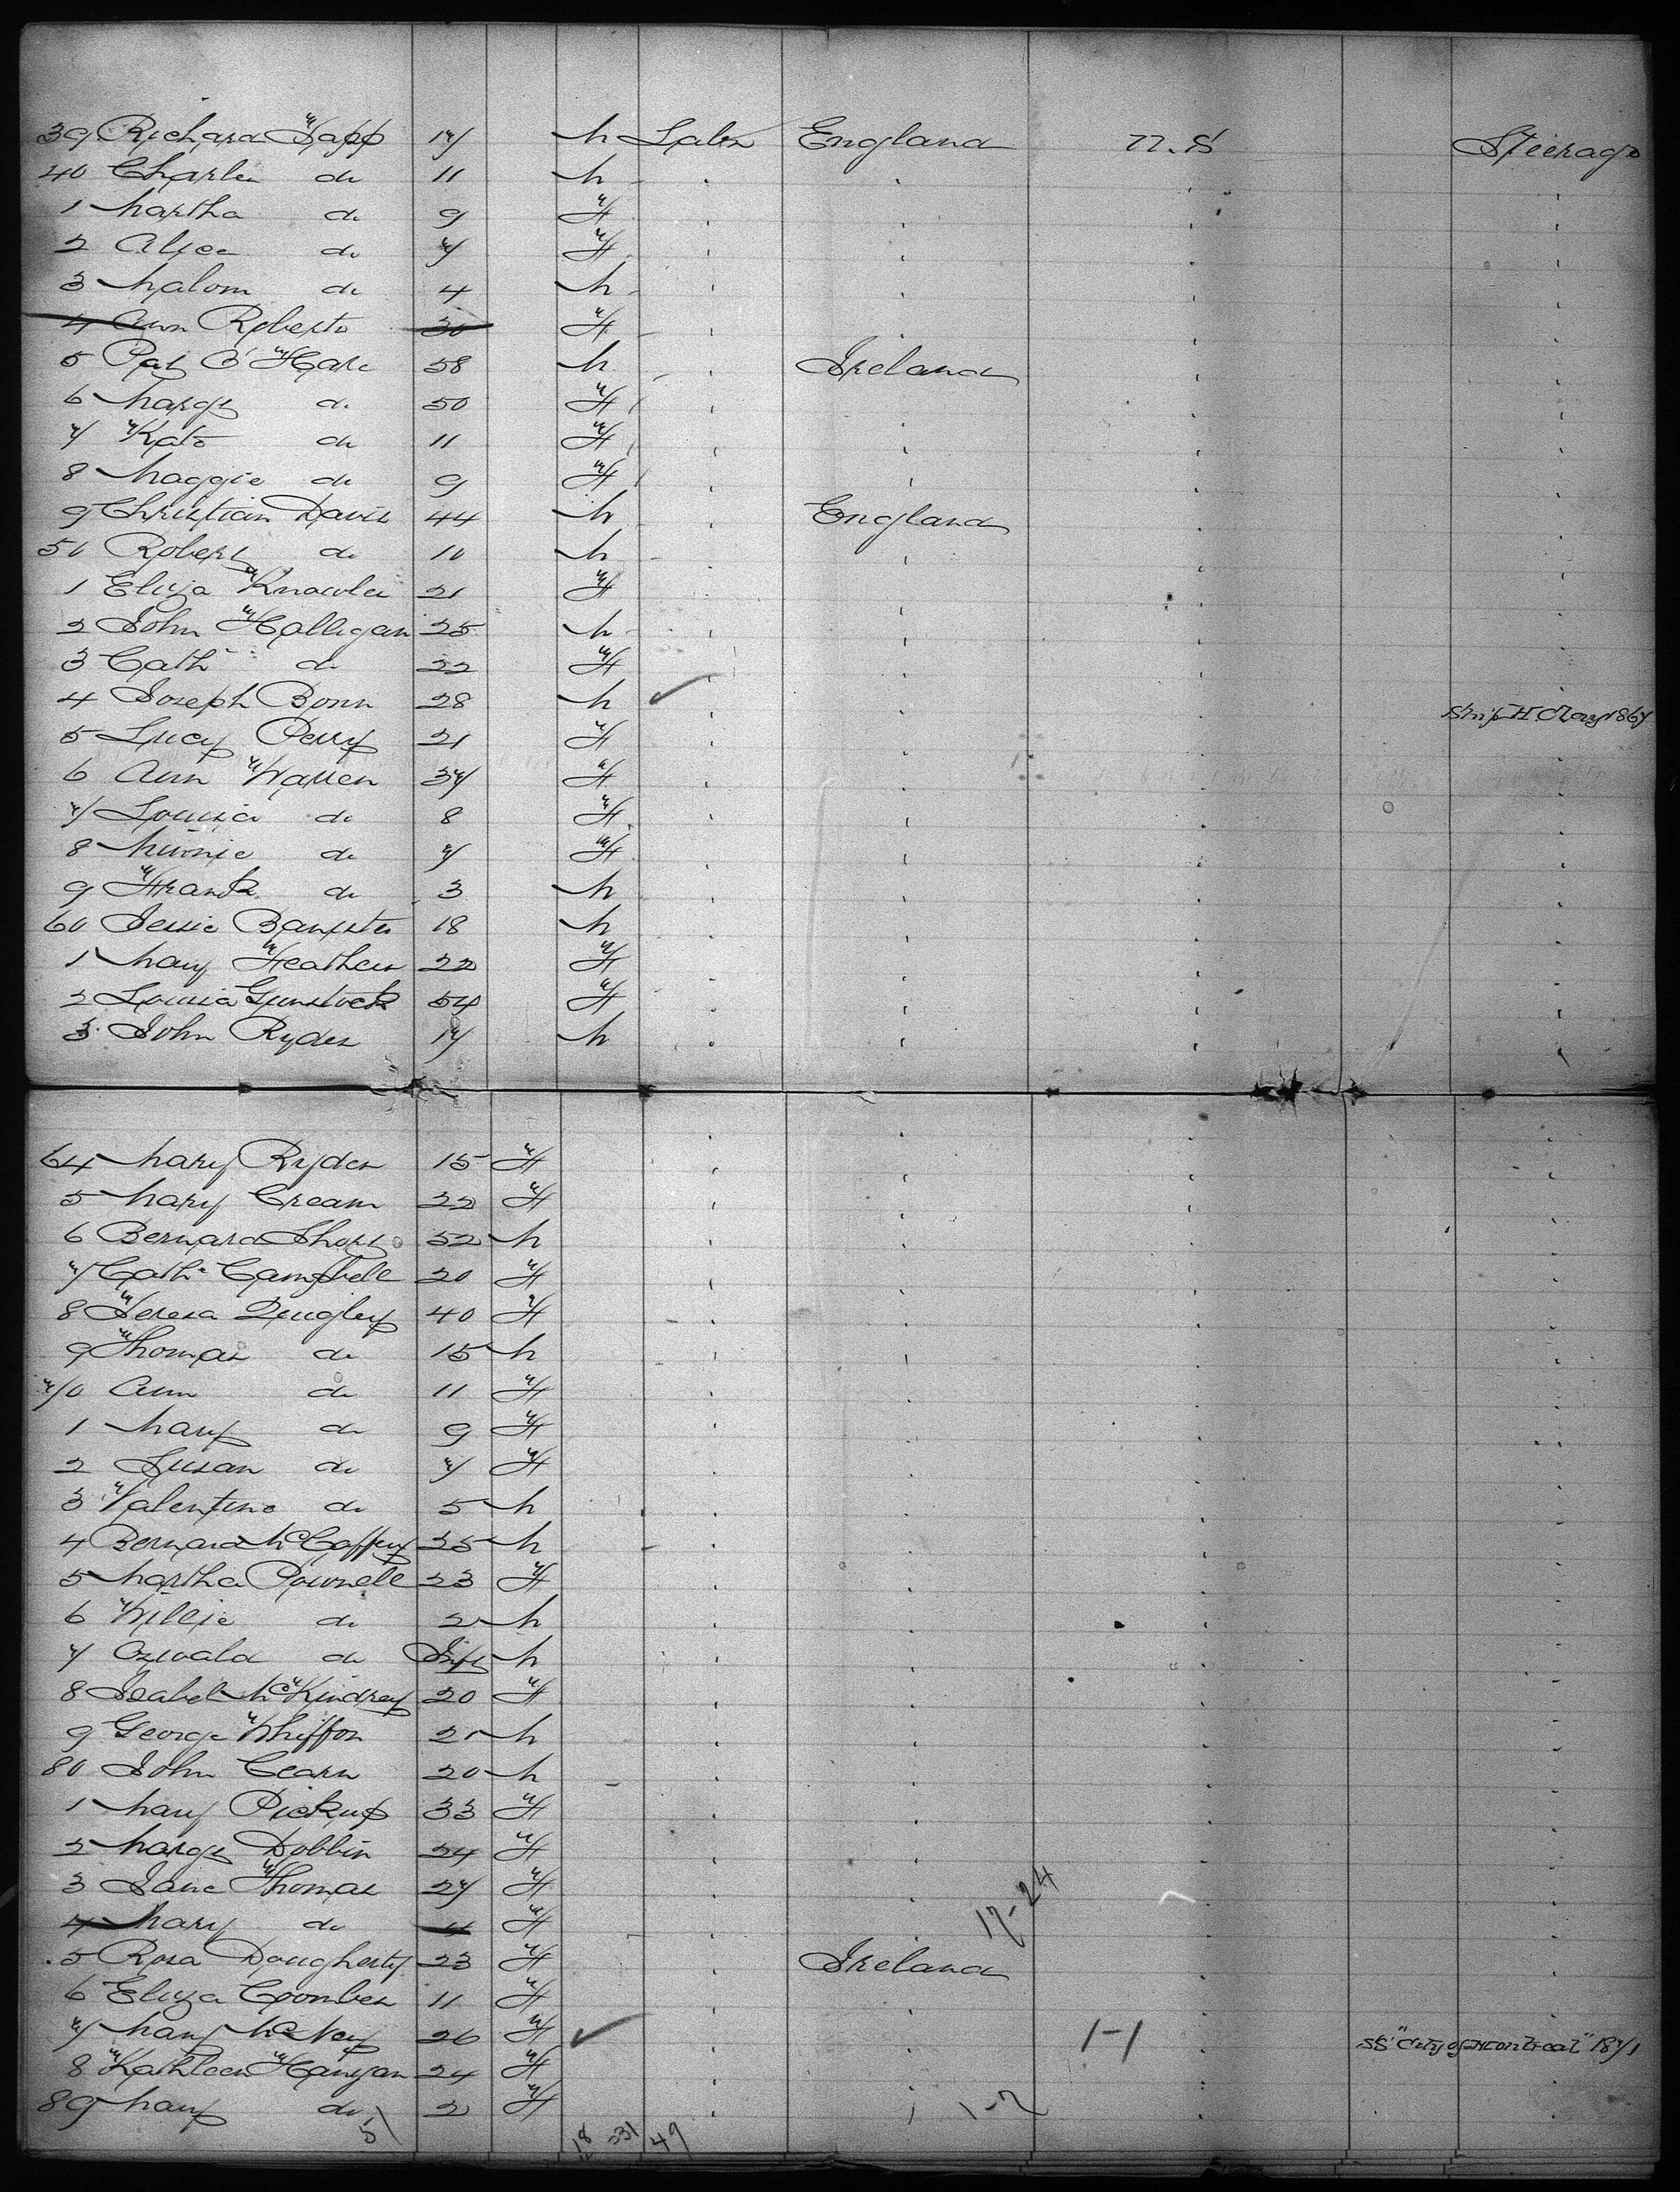 39 Richard Tapp 17 M Labr England U.S. Steerage
40 Charles do 11 M
1 Martha do 9 F
2 Alice do 7 F
3 Malom do 4 M
4 Ann Roberts 30 F
5 Pat O'Hare 58 M Ireland
6 Margt do 50 F
7 Kate do 11 F
8 Maggie do 9 F
9 Christian Davis 44 M England
50 Robert do 10 M
1 Eliza Knowles 21 F
2 John Halligan 25 M
3 Cath do 22 F
4 Joseph Bonn 28 M ✓ Ship H Clay 1867
5 Lucy Perry 21 F
6 Ann Warren 37 F
7 Louisa do 8 F
8 Minnie do 7 F
9 Frank do 3 M
60 Jessie Banister 18 M
1 Mary Heathers 22 F
2 Louisa Gunstock 54 F
3 John Ryder 17 M
64 Mary Ryder 15 F
5 Mary Cream 22 F
6 Bernard Short 52 M
7 Cath Campbell 20 F
8 Teresa Quigley 40 F
9 Thomas do 15 M
70 Ann do 11 F
1 Mary do 9 F
2 Susan do 7 F
3 Valentine do 5 M
4 Bernard McCaffery 25 M
5 Martha Pownell 23 F
6 Willie do 2 M
7 Oswald do Inft M
8 Isabel McKindrey 20 F
9 George Whiffon 21 M
80 John Cearn 20 M
1 Mary Pickup 33 F
2 Margt Dobbin 24 F
3 Jane Thomas 27 F
17-24
4 Mary do 11 F
5 Rosa Dougherty 23 F Ireland
6 Eliza Coomber 11 F
7 Mary McVey 26 F ✓ 1-1 SS "City of Montreal" 1871
8 Kathleen Hanyan 24 F
89 Mary do 2 F 1-2
51 18 331 49